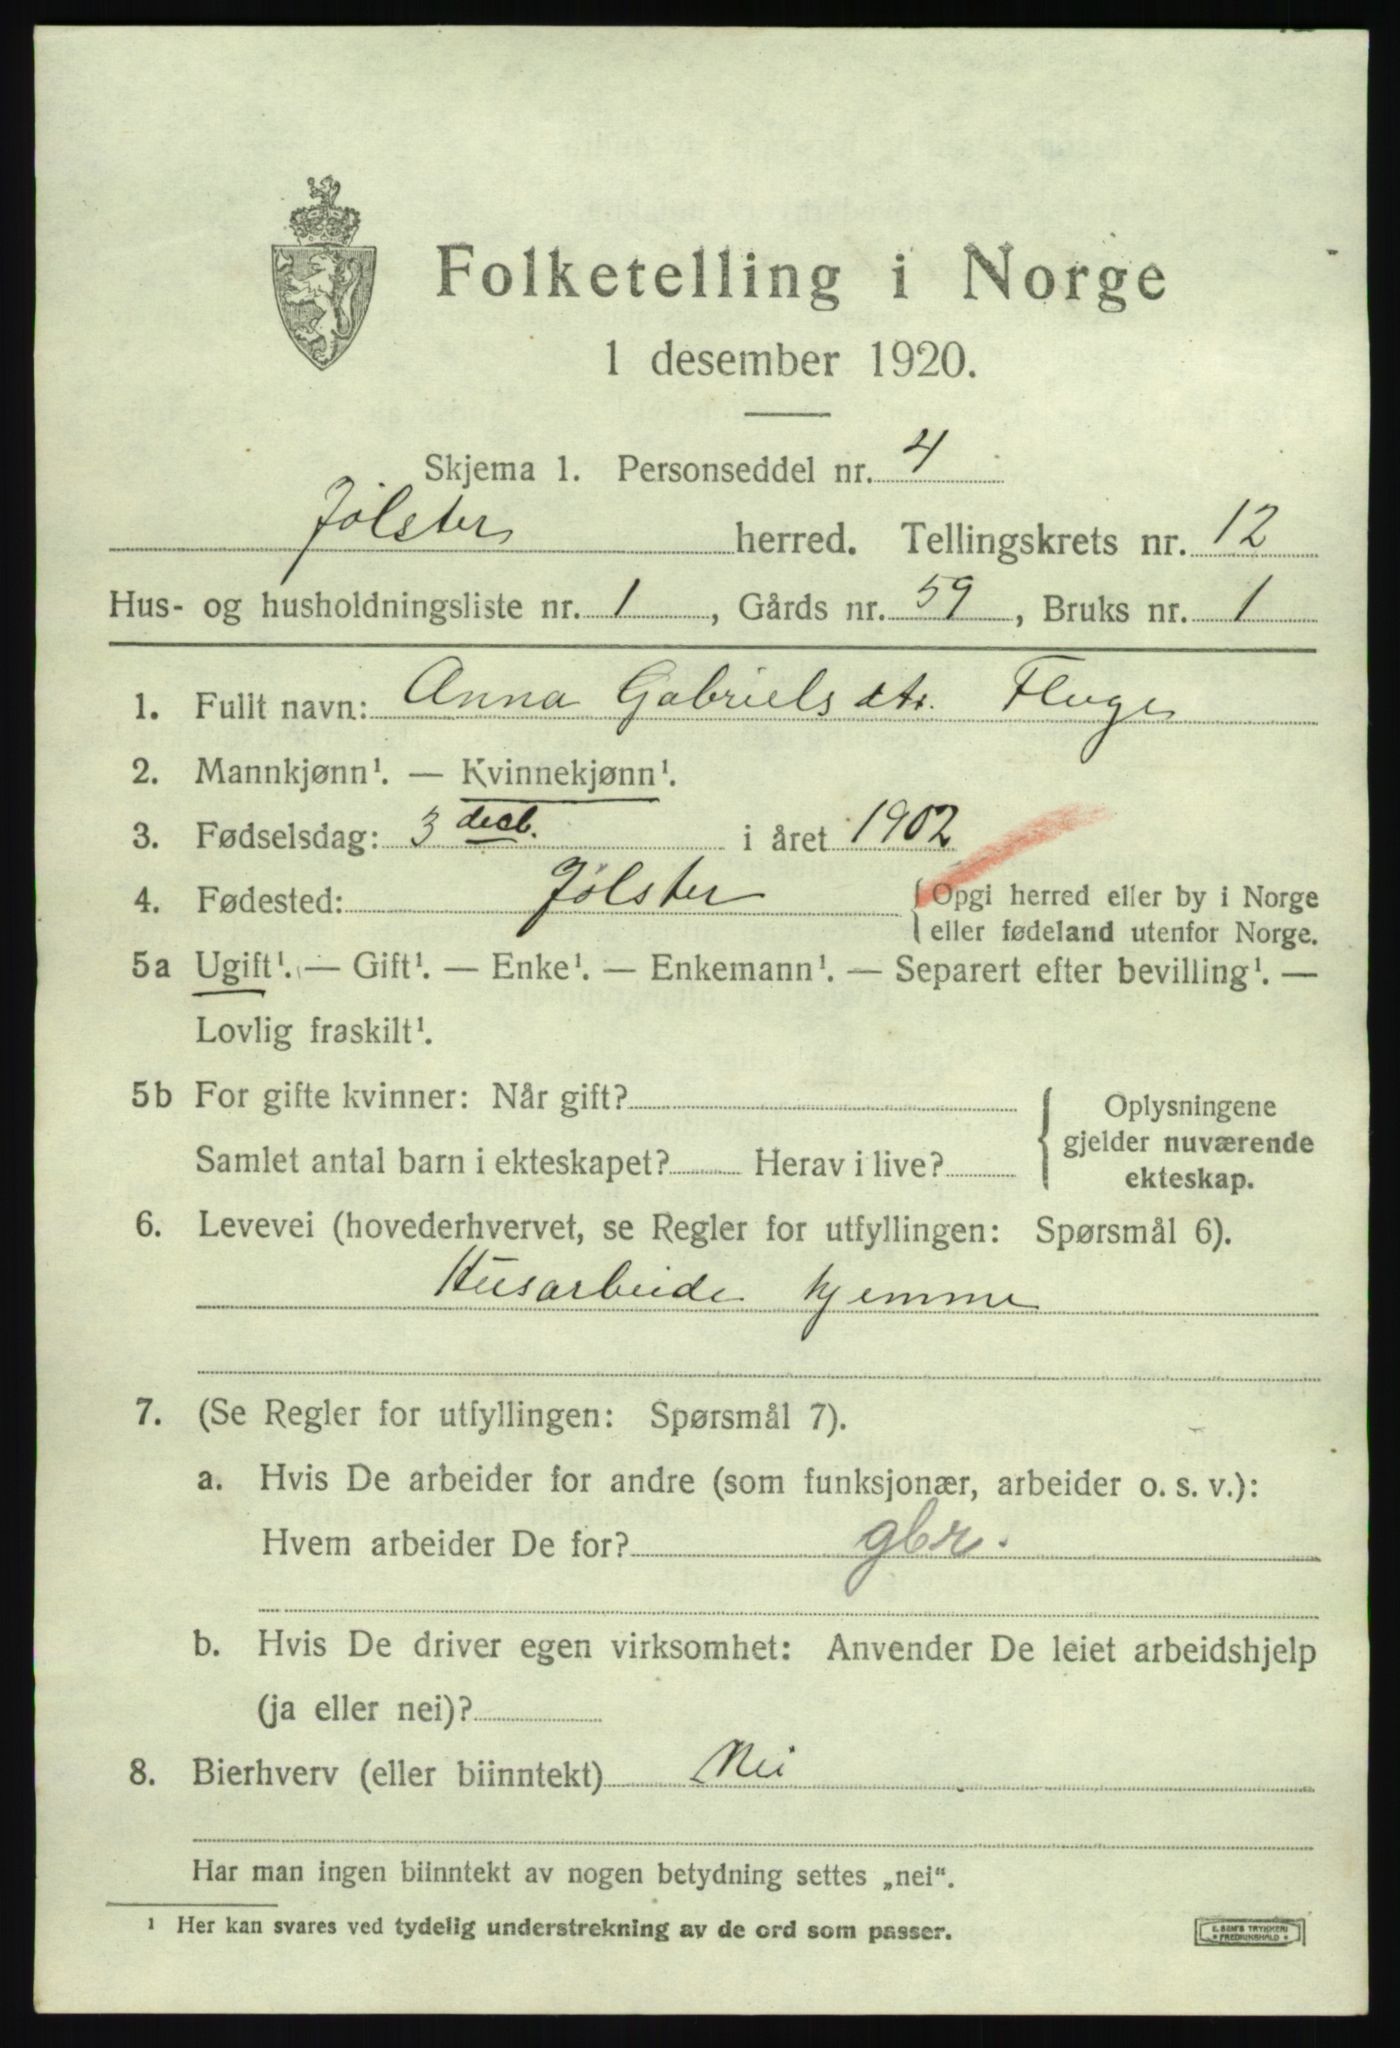 Folketelling i Norge
1 desember 1920.
Skjema 1. Personseddel nr. 4
Jølster herred. Tellingskrets nr. 12
Hus- og husholdningsliste nr. 1, Gårds nr. 59, Bruks nr. 1
1. Fullt navn: Anna Gabrielsdtr. Fluge
2. Mannkjønn¹. — Kvinnekjønn¹.
3. Fødselsdag: 3 decb. i året 1902
4. Fødested: Jølster {Opgi herred eller by i Norge
eller fødeland utenfor Norge.
5a Ugift¹. — Gift¹. — Enke¹. — Enkemann¹. — Separert efter bevilling¹. —
Lovlig fraskilt¹.
5b For gifte kvinner: Når gift?
Samlet antal barn i ekteskapet? Herav i live?
{Oplysningene
gjelder nuværende
ekteskap.
6. Levevei (hovederhvervet, se Regler for utfyllingen: Spørsmål 6).
Husarbeide hjemme
7. (Se Regler for utfyllingen: Spørsmål 7).
a. Hvis De arbeider for andre (som funksjonær, arbeider o. s. v.):
Hvem arbeider De for? gbr.
b. Hvis De driver egen virksomhet: Anvender De leiet arbeidshjelp
(ja eller nei)?
8. Bierhverv (eller biinntekt) Nei
Har man ingen biinntekt av nogen betydning settes „nei“.
¹ Her kan svares ved tydelig understrekning av de ord som passer.
E. SEM'S TRYKKERI
FREDRIKSHALD